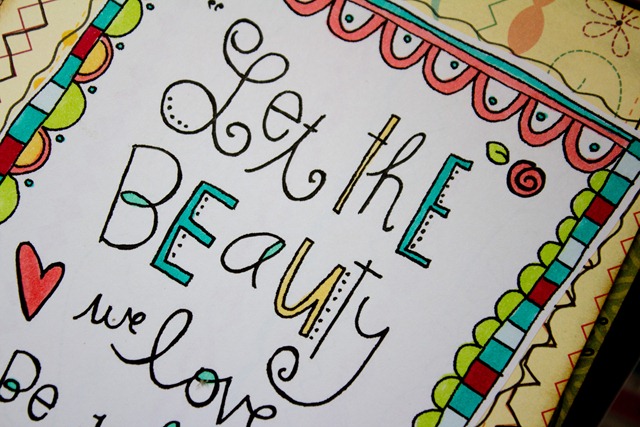 Let thE
BEauty
we love
Be